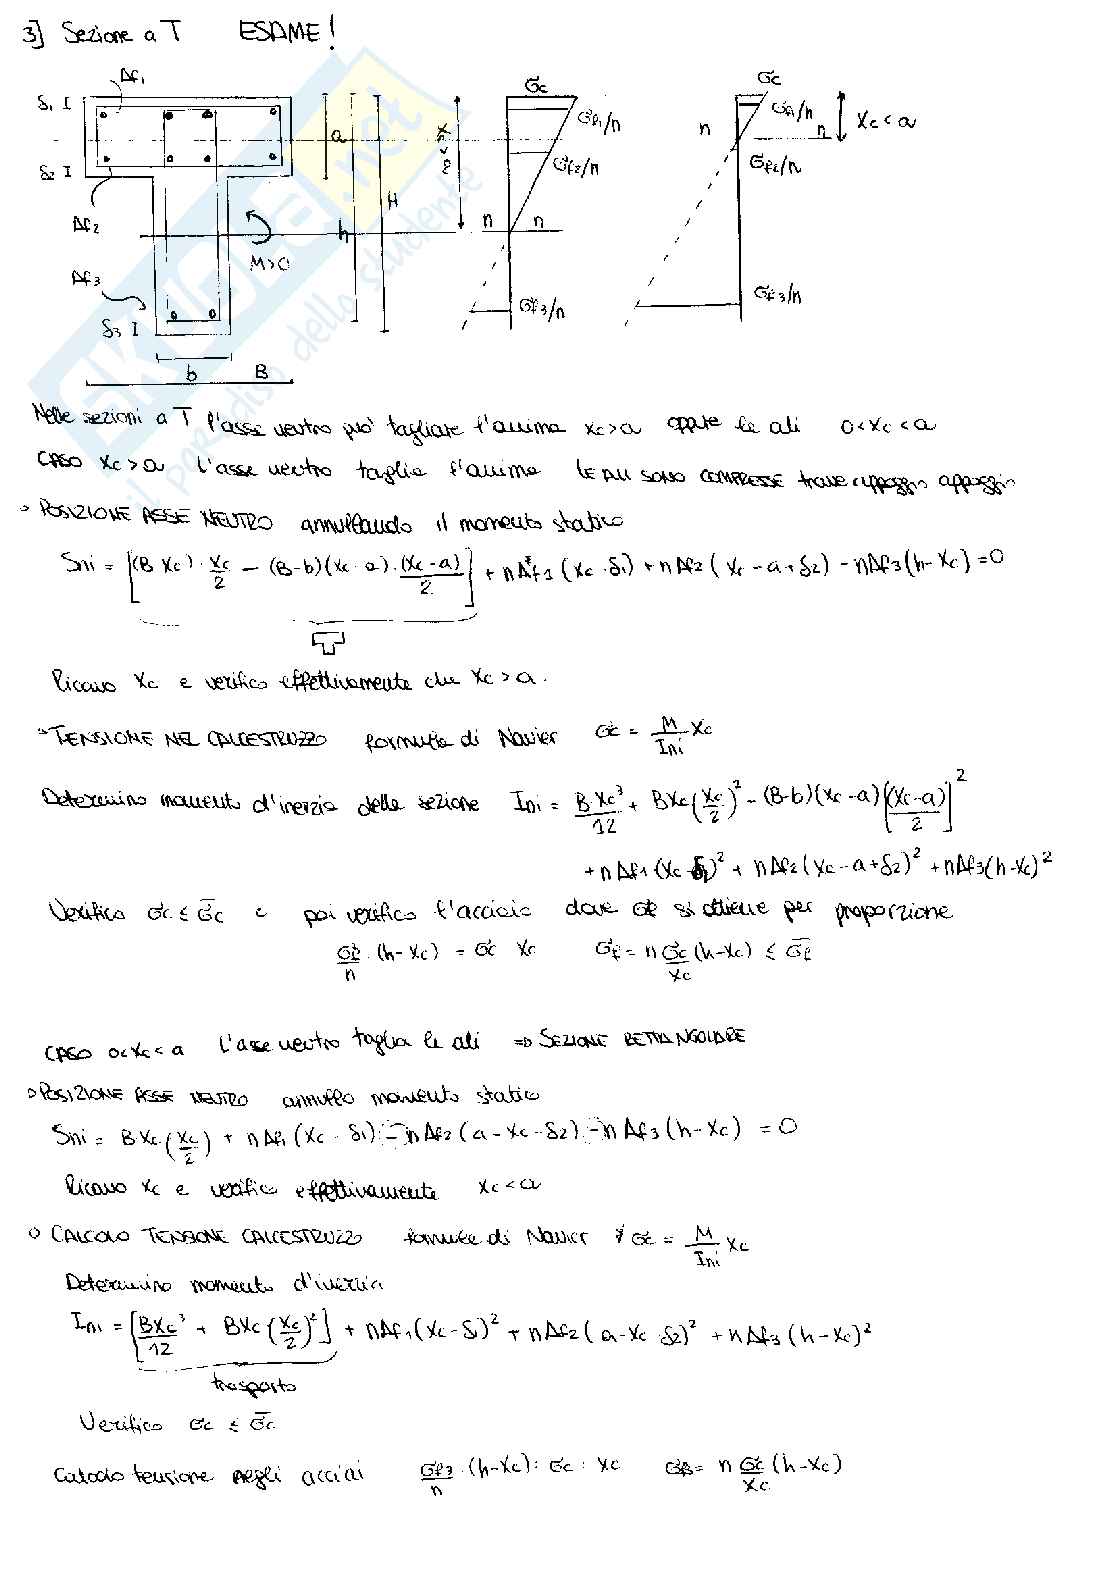 3] Sezione a T ESAME!
Af1
δ1 I
a
δ2 I
Af2
H
h
M>0
Af3
δ3 I
b B
σc
σf1/n
σf2/n
n n
σf3/n
σc
σf1/n
n n
Xc < a
σf2/n
σf3/n
SKUOLA.net
il paradiso dello studente
Nelle sezioni a T l'asse neutro può tagliare l'anima xc>a oppure le ali 0<xc<a
CASO xc>a L'asse neutro taglia l'anima LE ALI SONO COMPRESSE trave appoggio appoggio
POSIZIONE ASSE NEUTRO annullando il momento statico
Sni = [(B Xc) · Xc/2 − (B-b)(xc-a)·(xc-a)/2] + nAf1 (xc-δ1) + nAf2 (xc-a+δ2) − nAf3(h-xc) = 0
Ricavo xc e verifico effettivamente che xc>a.
TENSIONE NEL CALCESTRUZZO formula di Navier σc = M/Ini Xc
Determino momento d'inerzia della sezione Ini = B Xc³/12 + BXc(Xc/2)² − (B-b)(xc-a)[(xc-a)/2]²
+ n Af1 (xc-δ1)² + n Af2 (xc-a+δ2)² + nAf3(h-xc)²
Verifico σc ≤ σ̄c e poi verifico l'acciaio dove σf si ottiene per proporzione
σf/n · (h-xc) = σc xc σf = n σc/xc (h-xc) ≤ σ̄f
CASO 0<xc<a L'asse neutro taglia le ali => SEZIONE RETTANGOLARE
POSIZIONE ASSE NEUTRO annullo momento statico
Sni = Bxc (xc/2) + n Af1 (xc-δ1) − nAf2 (a-xc-δ2) − nAf3 (h-xc) = 0
Ricavo xc e verifico effettivamente xc<a
CALCOLO TENSIONE CALCESTRUZZO formula di Navier σc = M/Ini xc
Determino momento d'inerzia
Ini = [Bxc³/12 + Bxc(xc/2)²] + nAf1(xc-δ1)² + nAf2(a-xc δ2)² + nAf3 (h-xc)²
trasporto
Verifico σc ≤ σ̄c
Calcolo tensione negli acciai σf3/n · (h-xc) : σc : xc σf3 = n σc/xc (h-xc)